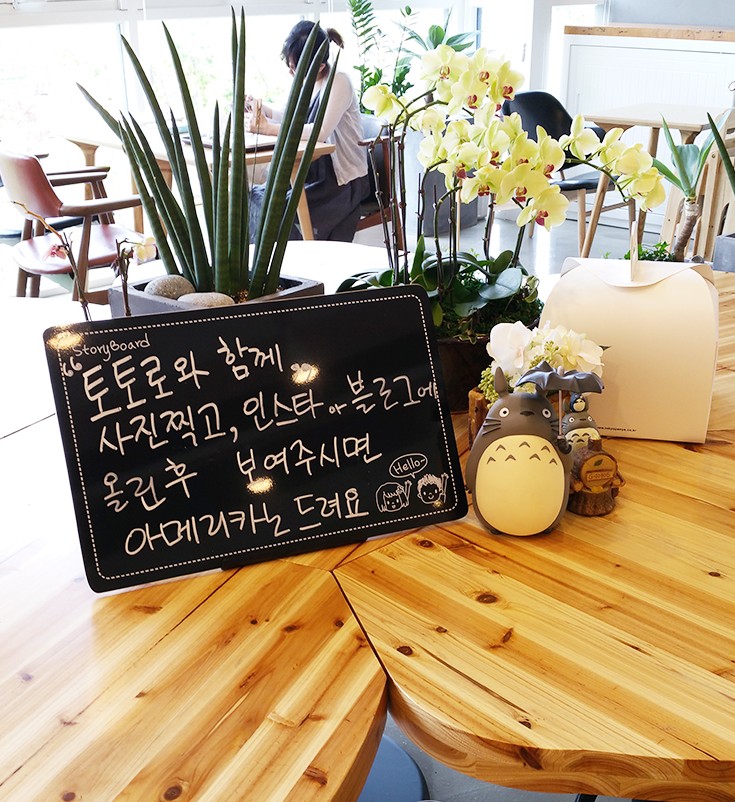 StoryBoard
“토토로와 함께”
사진찍고, 인스타 or 블로그에
올린후 보여주시면
Hello~
아메리카노 드려요